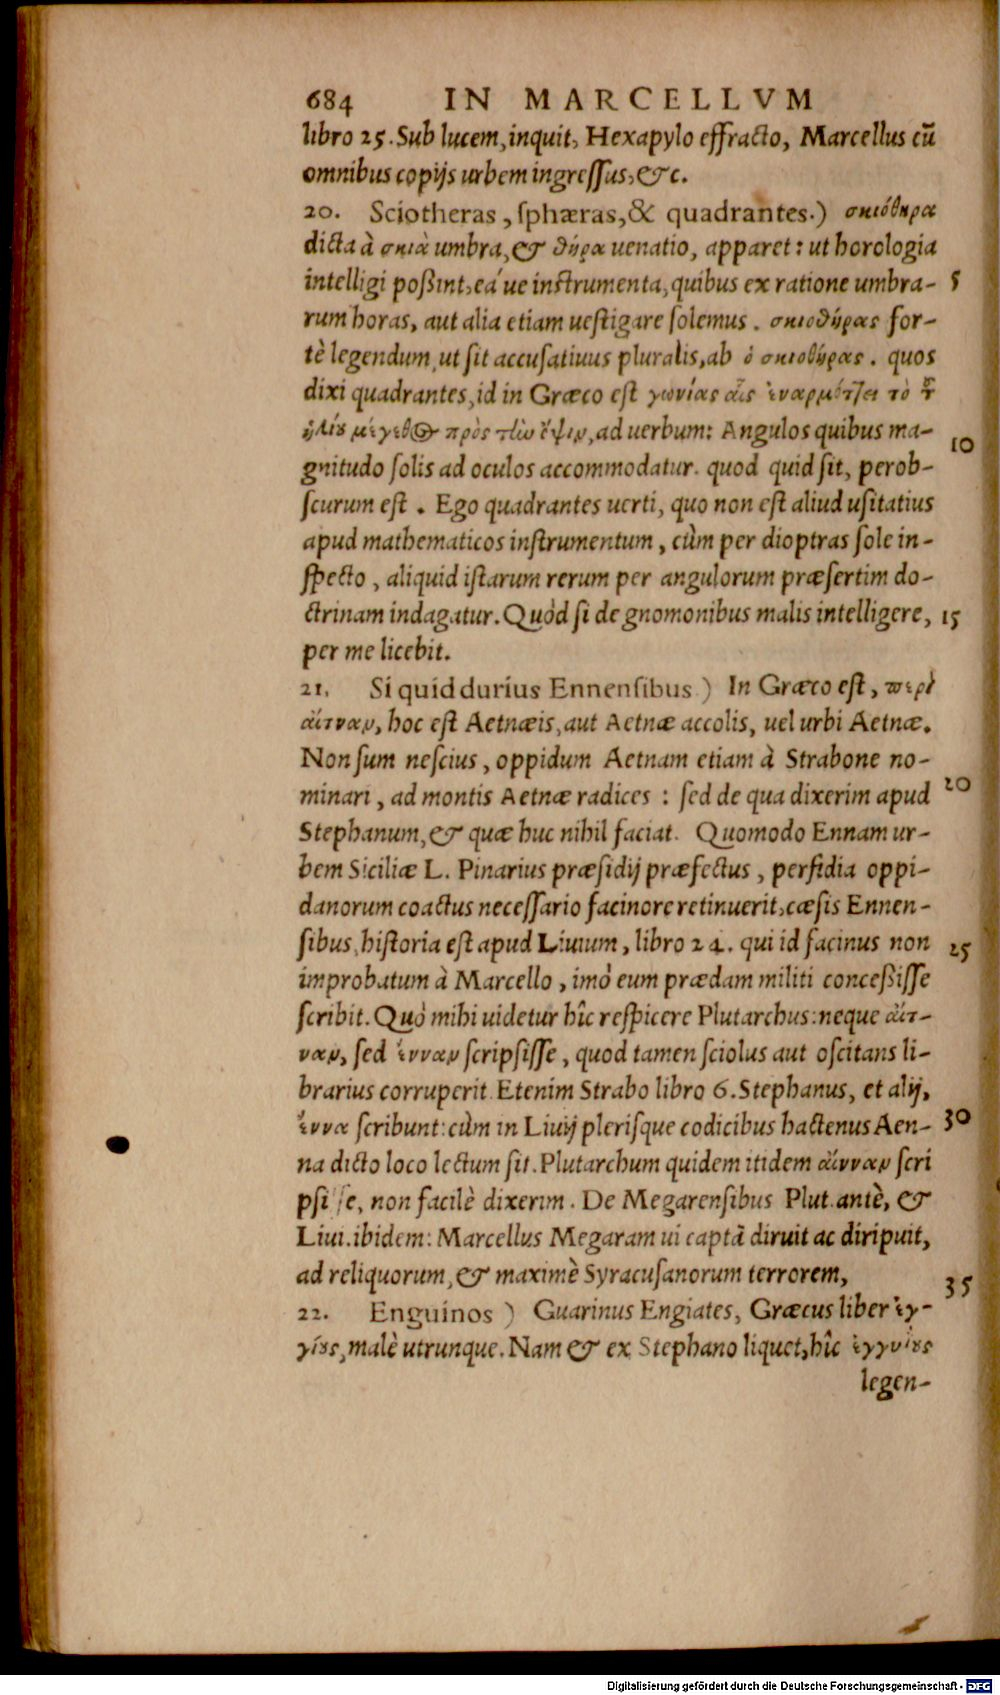 684 IN MARCELLVM
libro 25. Sub lucem, inquit, Hexapylo effracto, Marcellus cū
omnibus copijs urbem ingressus, &c.
20. Sciotheras, sphæras, & quadrantes.) σκιόθηρα
dicta à σκιὰ umbra, & θήρα uenatio, apparet: ut horologia
intelligi poßint, eá ue instrumenta, quibus ex ratione umbra- 5
rum horas, aut alia etiam uestigare solemus. σκιοθήρας for-
tè legendum, ut sit accusatiuus pluralis, ab ὁ σκιοθήρας. quos
dixi quadrantes, id in Græco est γωνίας αἷς ἐναρμότζει τὸ τοῦ
ἡλίου μέγεθος πρὸς τὴν ὄψιν, ad uerbum: Angulos quibus ma-
gnitudo solis ad oculos accommodatur. quod quid sit, perob- 10
scurum est. Ego quadrantes uerti, quo non est aliud usitatius
apud mathematicos instrumentum, cùm per dioptras sole in-
specto, aliquid istarum rerum per angulorum præsertim do-
ctrinam indagatur. Quòd si de gnomonibus malis intelligere, 15
per me licebit.
21. Si quid durius Ennensibus) In Græco est, περὶ
αἴτναν, hoc est Aetnæis, aut Aetnæ accolis, uel urbi Aetnæ.
Non sum nescius, oppidum Aetnam etiam à Strabone no-
minari, ad montis Aetnæ radices: sed de qua dixerim apud 20
Stephanum, & quæ huc nihil faciat. Quomodo Ennam ur-
bem Siciliæ L. Pinarius præsidij præfectus, perfidia oppi-
danorum coactus necessario facinore retinuerit, cæsis Ennen-
sibus, historia est apud Liuium, libro 24. qui id facinus non 25
improbatum à Marcello, imò eum prædam militi conceßisse
scribit. Quò mihi uidetur hîc respicere Plutarchus: neque αἴτ-
ναν, sed ἔνναν scripsisse, quod tamen sciolus aut oscitans li-
brarius corruperit. Etenim Strabo libro 6. Stephanus, et alij,
ἔννα scribunt: cùm in Liuij plerisque codicibus hactenus Aen- 30
na dicto loco lectum sit. Plutarchum quidem itidem αἴνναν scri
psisse, non facilè dixerim. De Megarensibus Plut. antè, &
Liui. ibidem: Marcellus Megaram ui captā diruit ac diripuit,
ad reliquorum, & maximè Syracusanorum terrorem, 35
22. Enguinos) Guarinus Engiates, Græcus liber ἐγ-
γίους, malè utrunque. Nam & ex Stephano liquet, hîc ἐγγυΐους
legen-
Digitalisierung gefördert durch die Deutsche Forschungsgemeinschaft - DFG